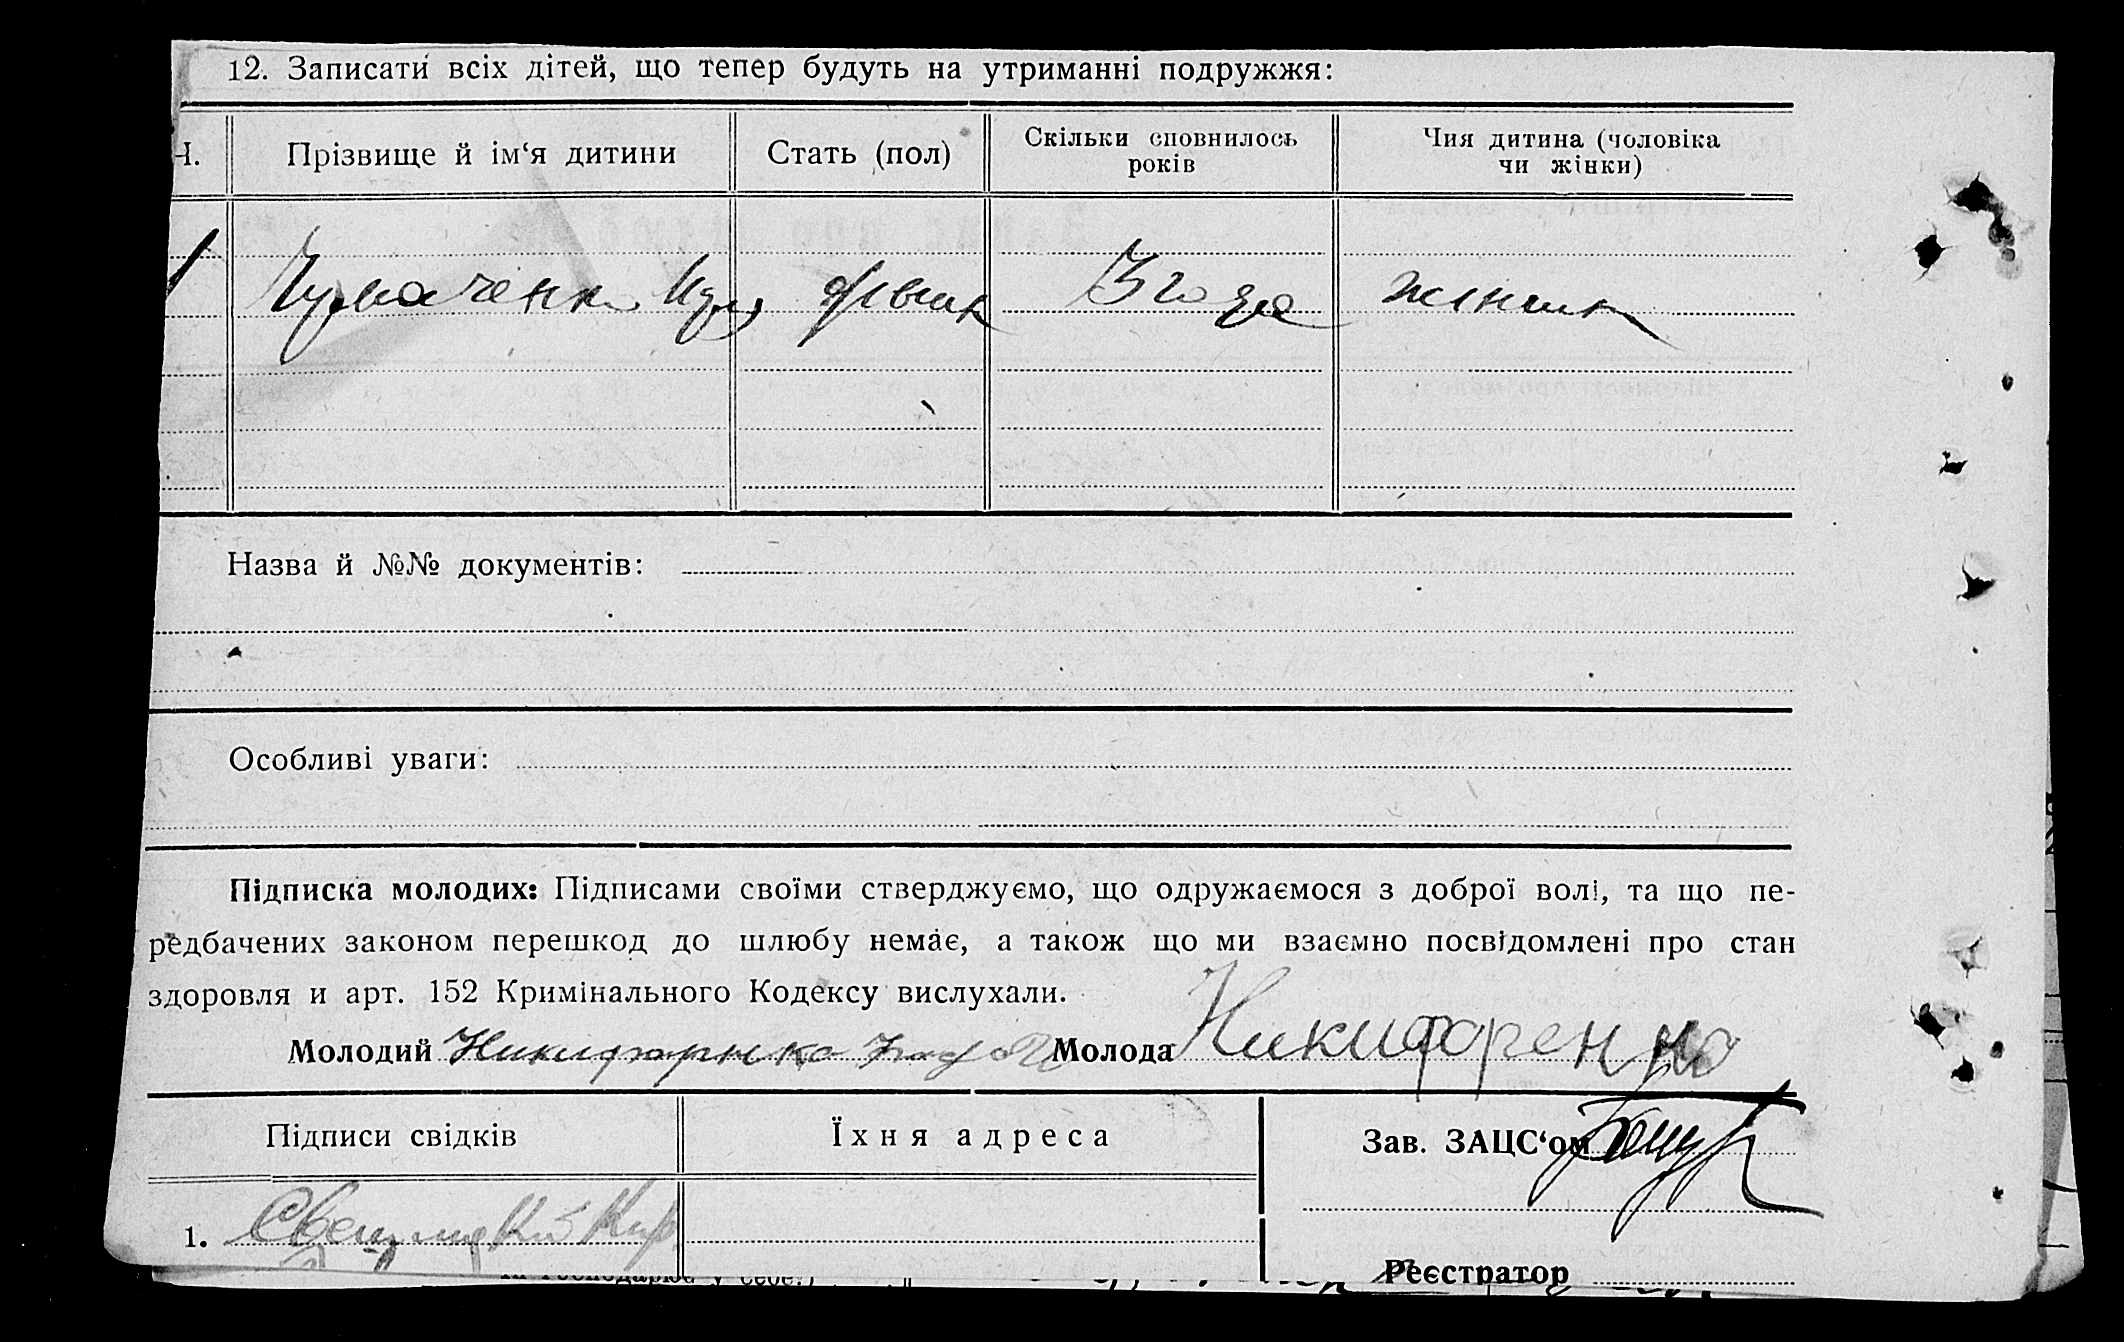 12. Записати всіх дітей, що тепер будуть на утриманні подружжя:
Ч. Прізвище й ім‘я дитини Стать (пол) Скільки сповнилось років Чия дитина (чоловіка чи жінки)
1 Чумаченко 3 года
Назва й №№ документів:
Особливі уваги:
Підписка молодих: Підписами своїми стверджуємо, що одружаємося з доброї волі, та що пе-
редбачених законом перешкод до шлюбу немає, а також що ми взаємно посвідомлені про стан
здоровля и арт. 152 Кримінального Кодексу вислухали.
Молодий Молода Никифоренко
Підписи свідків Їхня адреса Зав. ЗАЦС‘ом
1.
Реєстратор